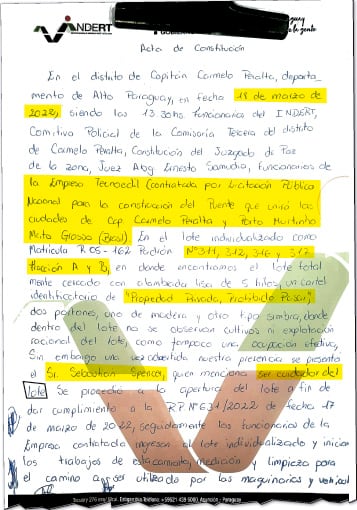 INDERT
Acta de Constitución
En el distrito de Capitán Carmelo Peralta, departa-
mento de Alto Paraguay, en fecha 18 de marzo de
2022, siendo las 13.30hs. Funcionarios del INDERT,
Comitiva Policial de la Comisaría Tercera del distrito
de Carmelo Peralta, Constitución del Juzgado de Paz
de la zona, Juez Abg. Ernesto Samudio, funcionarios de
la Empresa Tecnoedil (Contratada por Licitación Pública
Nacional para la construcción del Puente que unirá las
ciudades de Cap. Carmelo Peralta y Porto Murtinho
Mato Grosso (Brasil). En el lote individualizado como
Matrícula R05-162 Padrón Nº 311, 312, 316 y 317
Fracción A y B, en donde encontramos el lote total
mente cercado con alambrada lisa de 5 hilos, un cartel
identificatorio de "Propiedad Privada, Prohibido Pasar",
dos portones, uno de madera y otro tipo simbra, donde
dentro del lote no se observan cultivos ni explotación
racional del lote, como tampoco una ocupación efectiva,
Sin embargo una vez advertida nuestra presencia se presenta
el Sr. Sebastian Spencer, quien menciona ser cuidador del
lote. Se procedió a la apertura del lote a fin de
dar cumplimiento a la R.P. Nº 631/2022 de fecha 17
de marzo de 2022, seguidamente los funcionarios de la
Empresa contratada ingresan al lote individualizado y inician
los trabajos de estacamiento, medición y limpieza para
el camino a ser utilizado por las maquinarias y vehícul